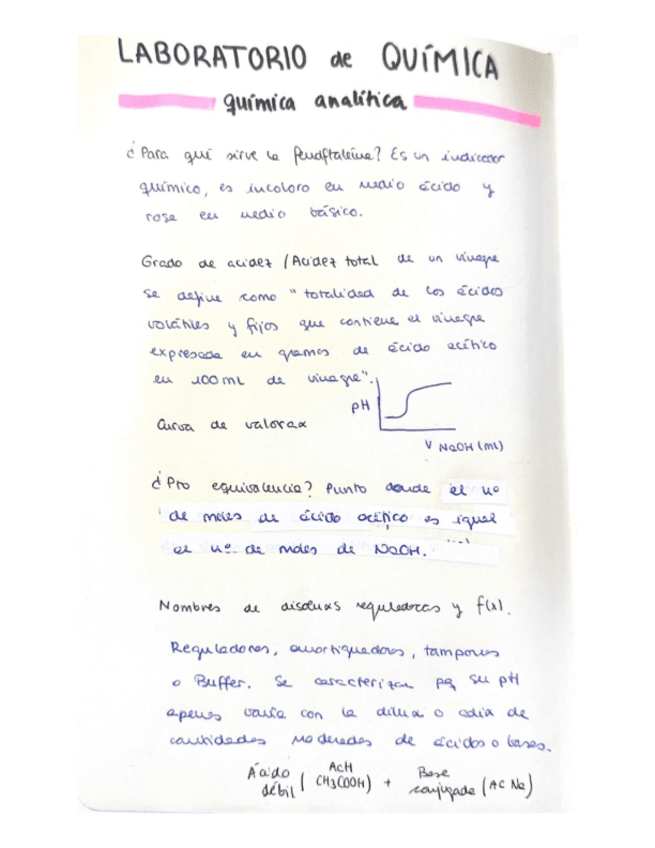 LABORATORIO de QUÍMICA
química analítica
¿Para qué sirve la fenolftaleína? Es un indicador
químico, es incoloro en medio ácido y
rosa en medio básico.
Grado de acidez / Acidez total de un vinagre
se define como "totalidad de los ácidos
volátiles y fijos que contiene el vinagre
expresada en gramos de ácido acético
en 100mL de vinagre".
pH
Curva de valorax
V NaOH (ml)
¿Pto equivalencia? Punto donde el nº
de moles de ácido acético es igual
al nº de moles de NaOH.
Nombres de disoluxs reguladoras y f(x).
Reguladores, amortiguadores, tampones
o Buffer. Se caracterizan pq su pH
apenas varía con la dilux o adix de
cantidades moderadas de ácidos o bases.
Ácido débil ( AcH CH3COOH) + Base conjugada (AC Na)